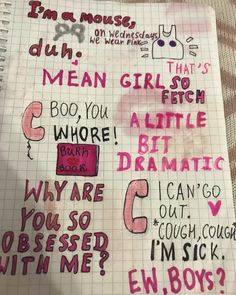 I'm a mouse,
duh.
on wednesdays
we wear pink
MEAN GIRL
THAT'S
SO
FETCH
BOO, YOU
WHORE!
A LITTLE
BIT
DRAMATIC
BURN
BOOK
WHY ARE
YOU SO
OBSESSED
WITH ME?
I CAN'GO
OUT.
*COUGH, COUGH*
I'M SICK.
EW, BOYS?